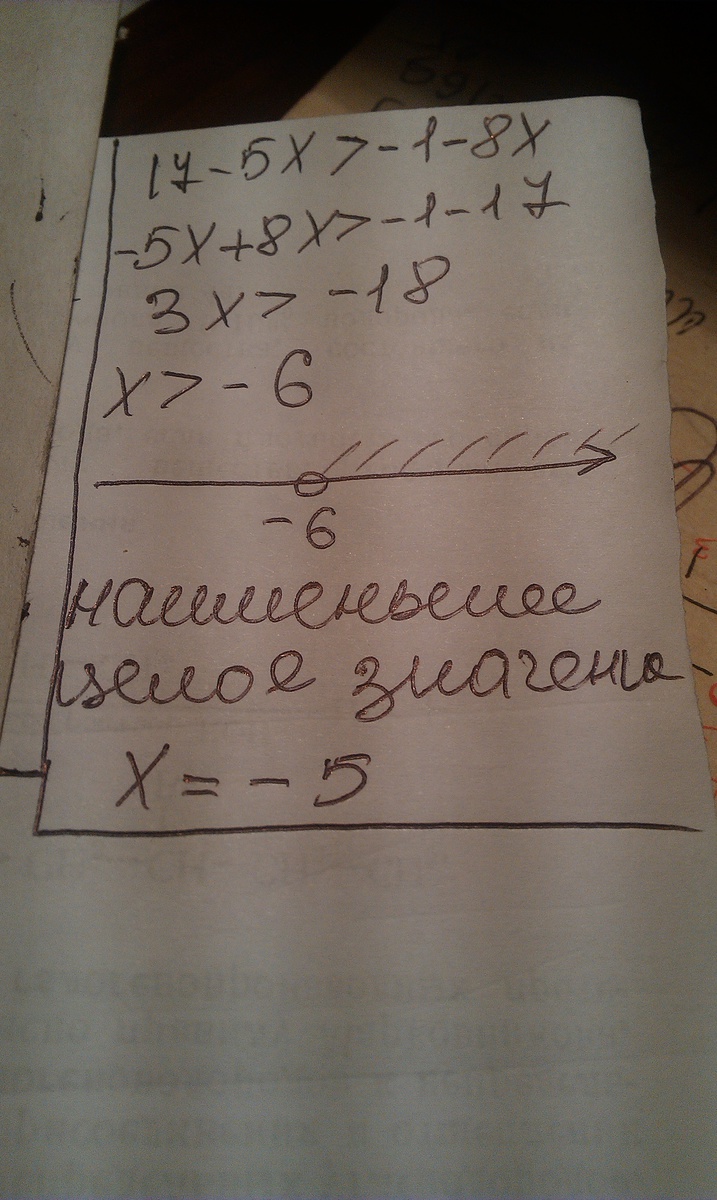 17-5x>-1-8x
-5x+8x>-1-17
3x>-18
x>-6
-6
наименьшее
целое значение
x=-5